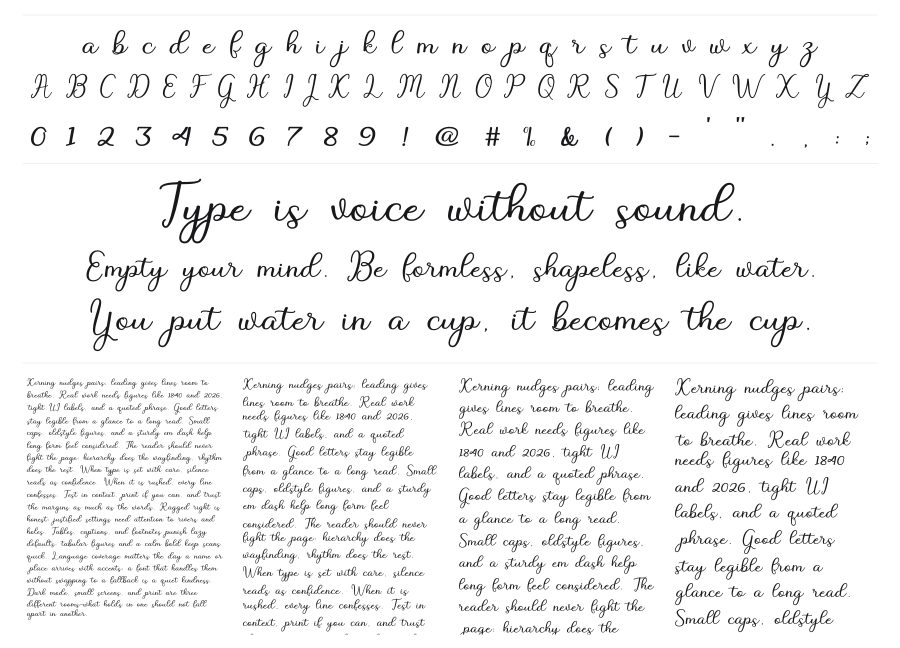 a b c d e f g h i j k l m n o p q r s t u v w x y z
A B C D E F G H I J K L M N O P Q R S T U V W X Y Z
0 1 2 3 4 5 6 7 8 9 ! @ # % & ( ) - ' " . , : ;
Type is voice without sound.
Empty your mind. Be formless, shapeless, like water.
You put water in a cup, it becomes the cup.
Kerning nudges pairs; leading gives lines room to
breathe. Real work needs figures like 1840 and 2026,
tight UI labels, and a quoted phrase. Good letters
stay legible from a glance to a long read. Small
caps, oldstyle figures, and a sturdy em dash help
long form feel considered. The reader should never
fight the page: hierarchy does the wayfinding, rhythm
does the rest. When type is set with care, silence
reads as confidence. When it is rushed, every line
confesses. Test in context, print if you can, and trust
the margins as much as the words. Ragged right is
honest; justified settings need attention to rivers and
holes. Tables, captions, and footnotes punish lazy
defaults; tabular figures and a calm bold keep scans
quick. Language coverage matters the day a name or
place arrives with accents; a font that handles them
without swapping to a fallback is a quiet kindness.
Dark mode, small screens, and print are three
different rooms—what holds in one should not fall
apart in another.
Kerning nudges pairs; leading gives
lines room to breathe. Real work
needs figures like 1840 and 2026,
tight UI labels, and a quoted
phrase. Good letters stay legible
from a glance to a long read. Small
caps, oldstyle figures, and a sturdy
em dash help long form feel
considered. The reader should never
fight the page: hierarchy does the
wayfinding, rhythm does the rest.
When type is set with care, silence
reads as confidence. When it is
rushed, every line confesses. Test in
context, print if you can, and trust
Kerning nudges pairs; leading
gives lines room to breathe.
Real work needs figures like
1840 and 2026, tight UI
labels, and a quoted phrase.
Good letters stay legible from
a glance to a long read.
Small caps, oldstyle figures,
and a sturdy em dash help
long form feel considered. The
reader should never fight the
page: hierarchy does the
Kerning nudges pairs;
leading gives lines room
to breathe. Real work
needs figures like 1840
and 2026, tight UI
labels, and a quoted
phrase. Good letters
stay legible from a
glance to a long read.
Small caps, oldstyle